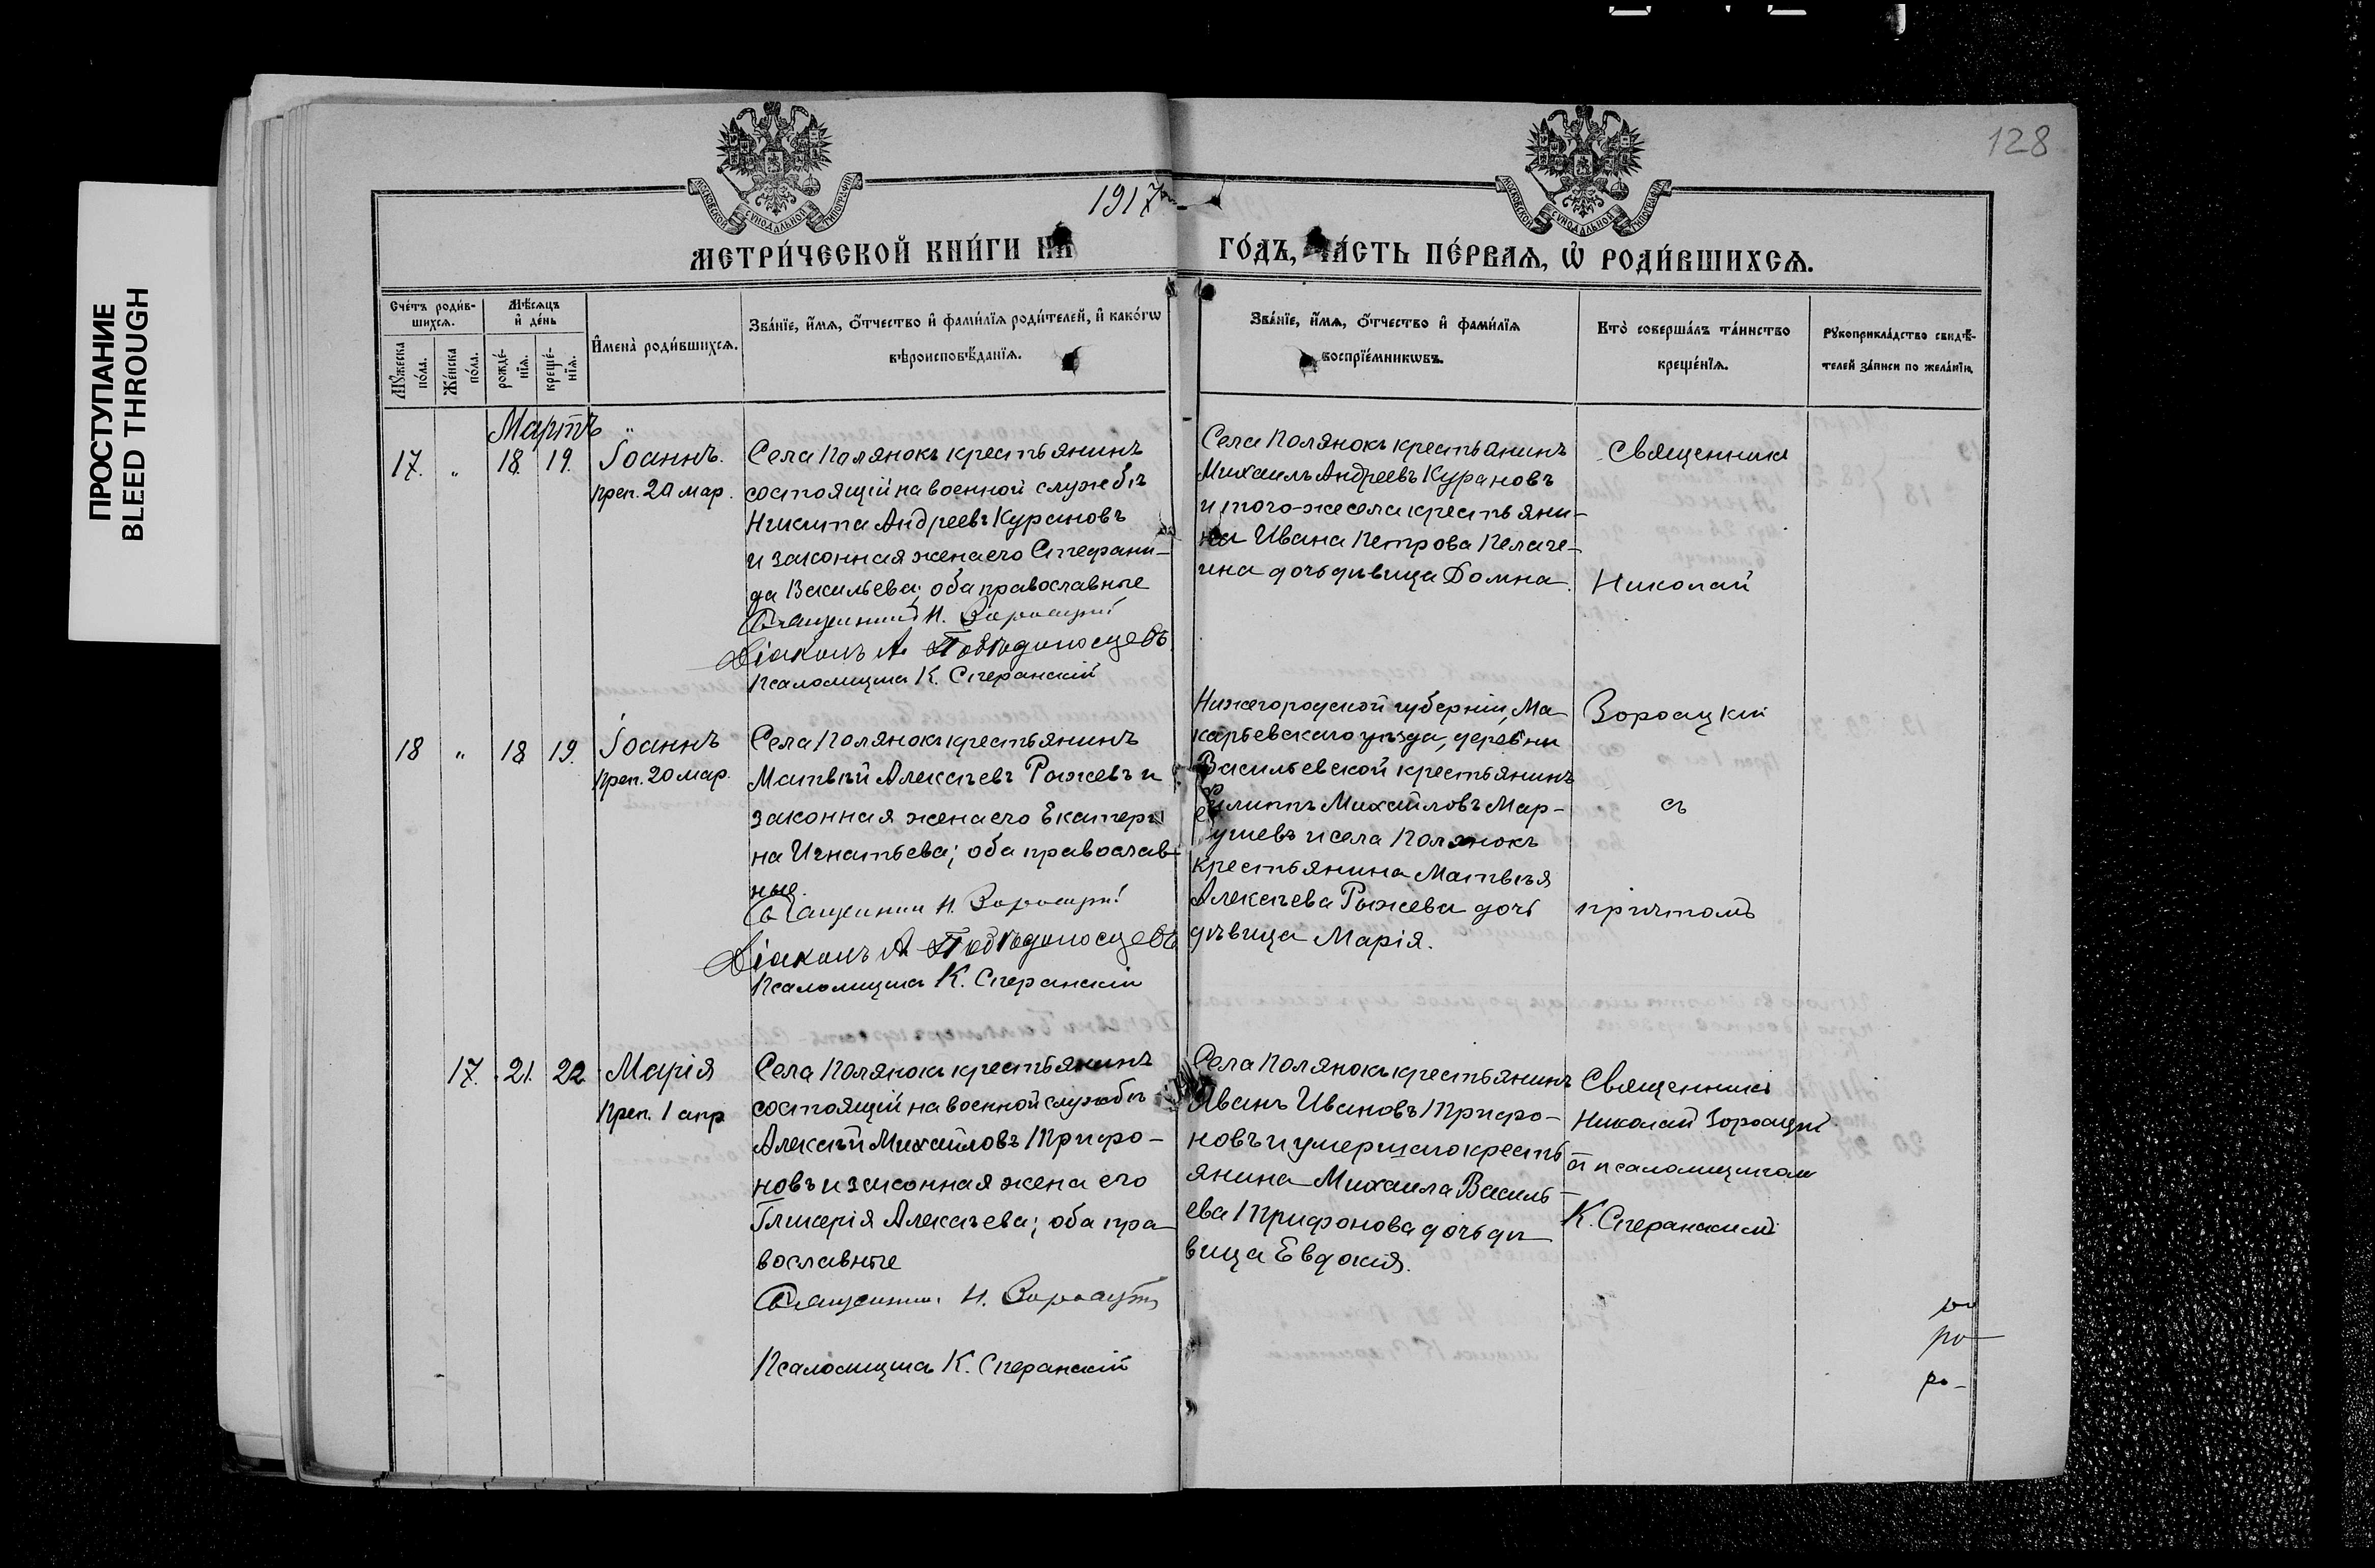 ПРОСТУПАНИЕ
BLEED THROUGH
128
МОСКОВСКОЙ СѴНОДАЛЬНОЙ ТИПОГРАФІИ
МОСКОВСКОЙ СѴНОДАЛЬНОЙ ТИПОГРАФІИ
1917
МЕТРИ́ЧЕСКОЙ КНИ́ГИ НА
ГО́ДЪ, ЧА́СТЬ ПЕ́РВАЯ, Ѡ҆ РОДИ́ВШИХСЯ.
Сче́тъ роди́в-
шихся.
Му́жеска по́ла.
Же́нска по́ла.
Мѣ́сяцъ
и҆ де́нь
рожде́-
нїя.
креще́-
нїя.
И҆мена̀ роди́вшихся.
Зва́нїе, и҆́мя, о҆́тчество и҆ фами́лїя роди́телей, и҆ како́гѡ
вѣроисповѣ́данїя.
Зва́нїе, и҆́мя, о҆́тчество и҆ фами́лїя
воспрїе́мникѡвъ.
Кто̀ соверша́лъ та́инство
креще́нїя.
Рукоприкла́дство свидѣ́-
телей за́писи по жела́нїю.
Мартъ
17. " 18. 19. Іоаннъ.
преп. 20 мар.
Села Полянокъ крестьянинъ
состоящій на военной службѣ
Никита Андреевъ Курановъ
и законная жена его Стефани-
да Васильева; оба православные
Священникъ Н. Зороацкій
Діаконъ А. Побѣдоносцевъ
Псаломщикъ К. Сперанскій
Села Полянокъ крестьянинъ
Михаилъ Андреевъ Курановъ
и того-же села крестьяни-
на Ивана Петрова Пелаге-
ина дочь дѣвица Домна.
Священникъ
Николай
Зороацкій
съ
причтомъ
18 " 18 19. Іоаннъ
Преп. 20 мар.
Села Полянокъ крестьянинъ
Матвѣй Алексѣевъ Рыжевъ и
законная жена его Екатери
на Игнатьева; оба православ-
ные.
Священникъ Н. Зороацкій
Діаконъ А Побѣдоносцевъ
Псаломщикъ К. Сперанскій
Нижегородской губерніи, Ма
карьевскаго уѣзда, деревни
Васильевской крестьянинъ
Филиппъ Михайловъ Мар-
ушевъ и села Полянокъ
крестьянина Матвѣя
Алексѣева Рыжева дочь
дѣвица Марія.
17. 21. 22 Марія
Преп. 1 апр
Села Полянокъ крестьянинъ
состоящій на военной службѣ
Алексѣй Михайловъ Трифо-
новъ и законная жена его
Гликерія Алексѣева; оба пра-
вославные
Священникъ Н. Зороацкій
Псаломщикъ К. Сперанскій
Села Полянокъ крестьянинъ
Иванъ Ивановъ Трифо-
новъ и умершаго кресть
янина Михаила Василь-
ева Трифонова дочь дѣ
вица Евдокія.
Священникъ
Николай Зороацкій
съ псаломщикомъ
К. Сперанскимъ